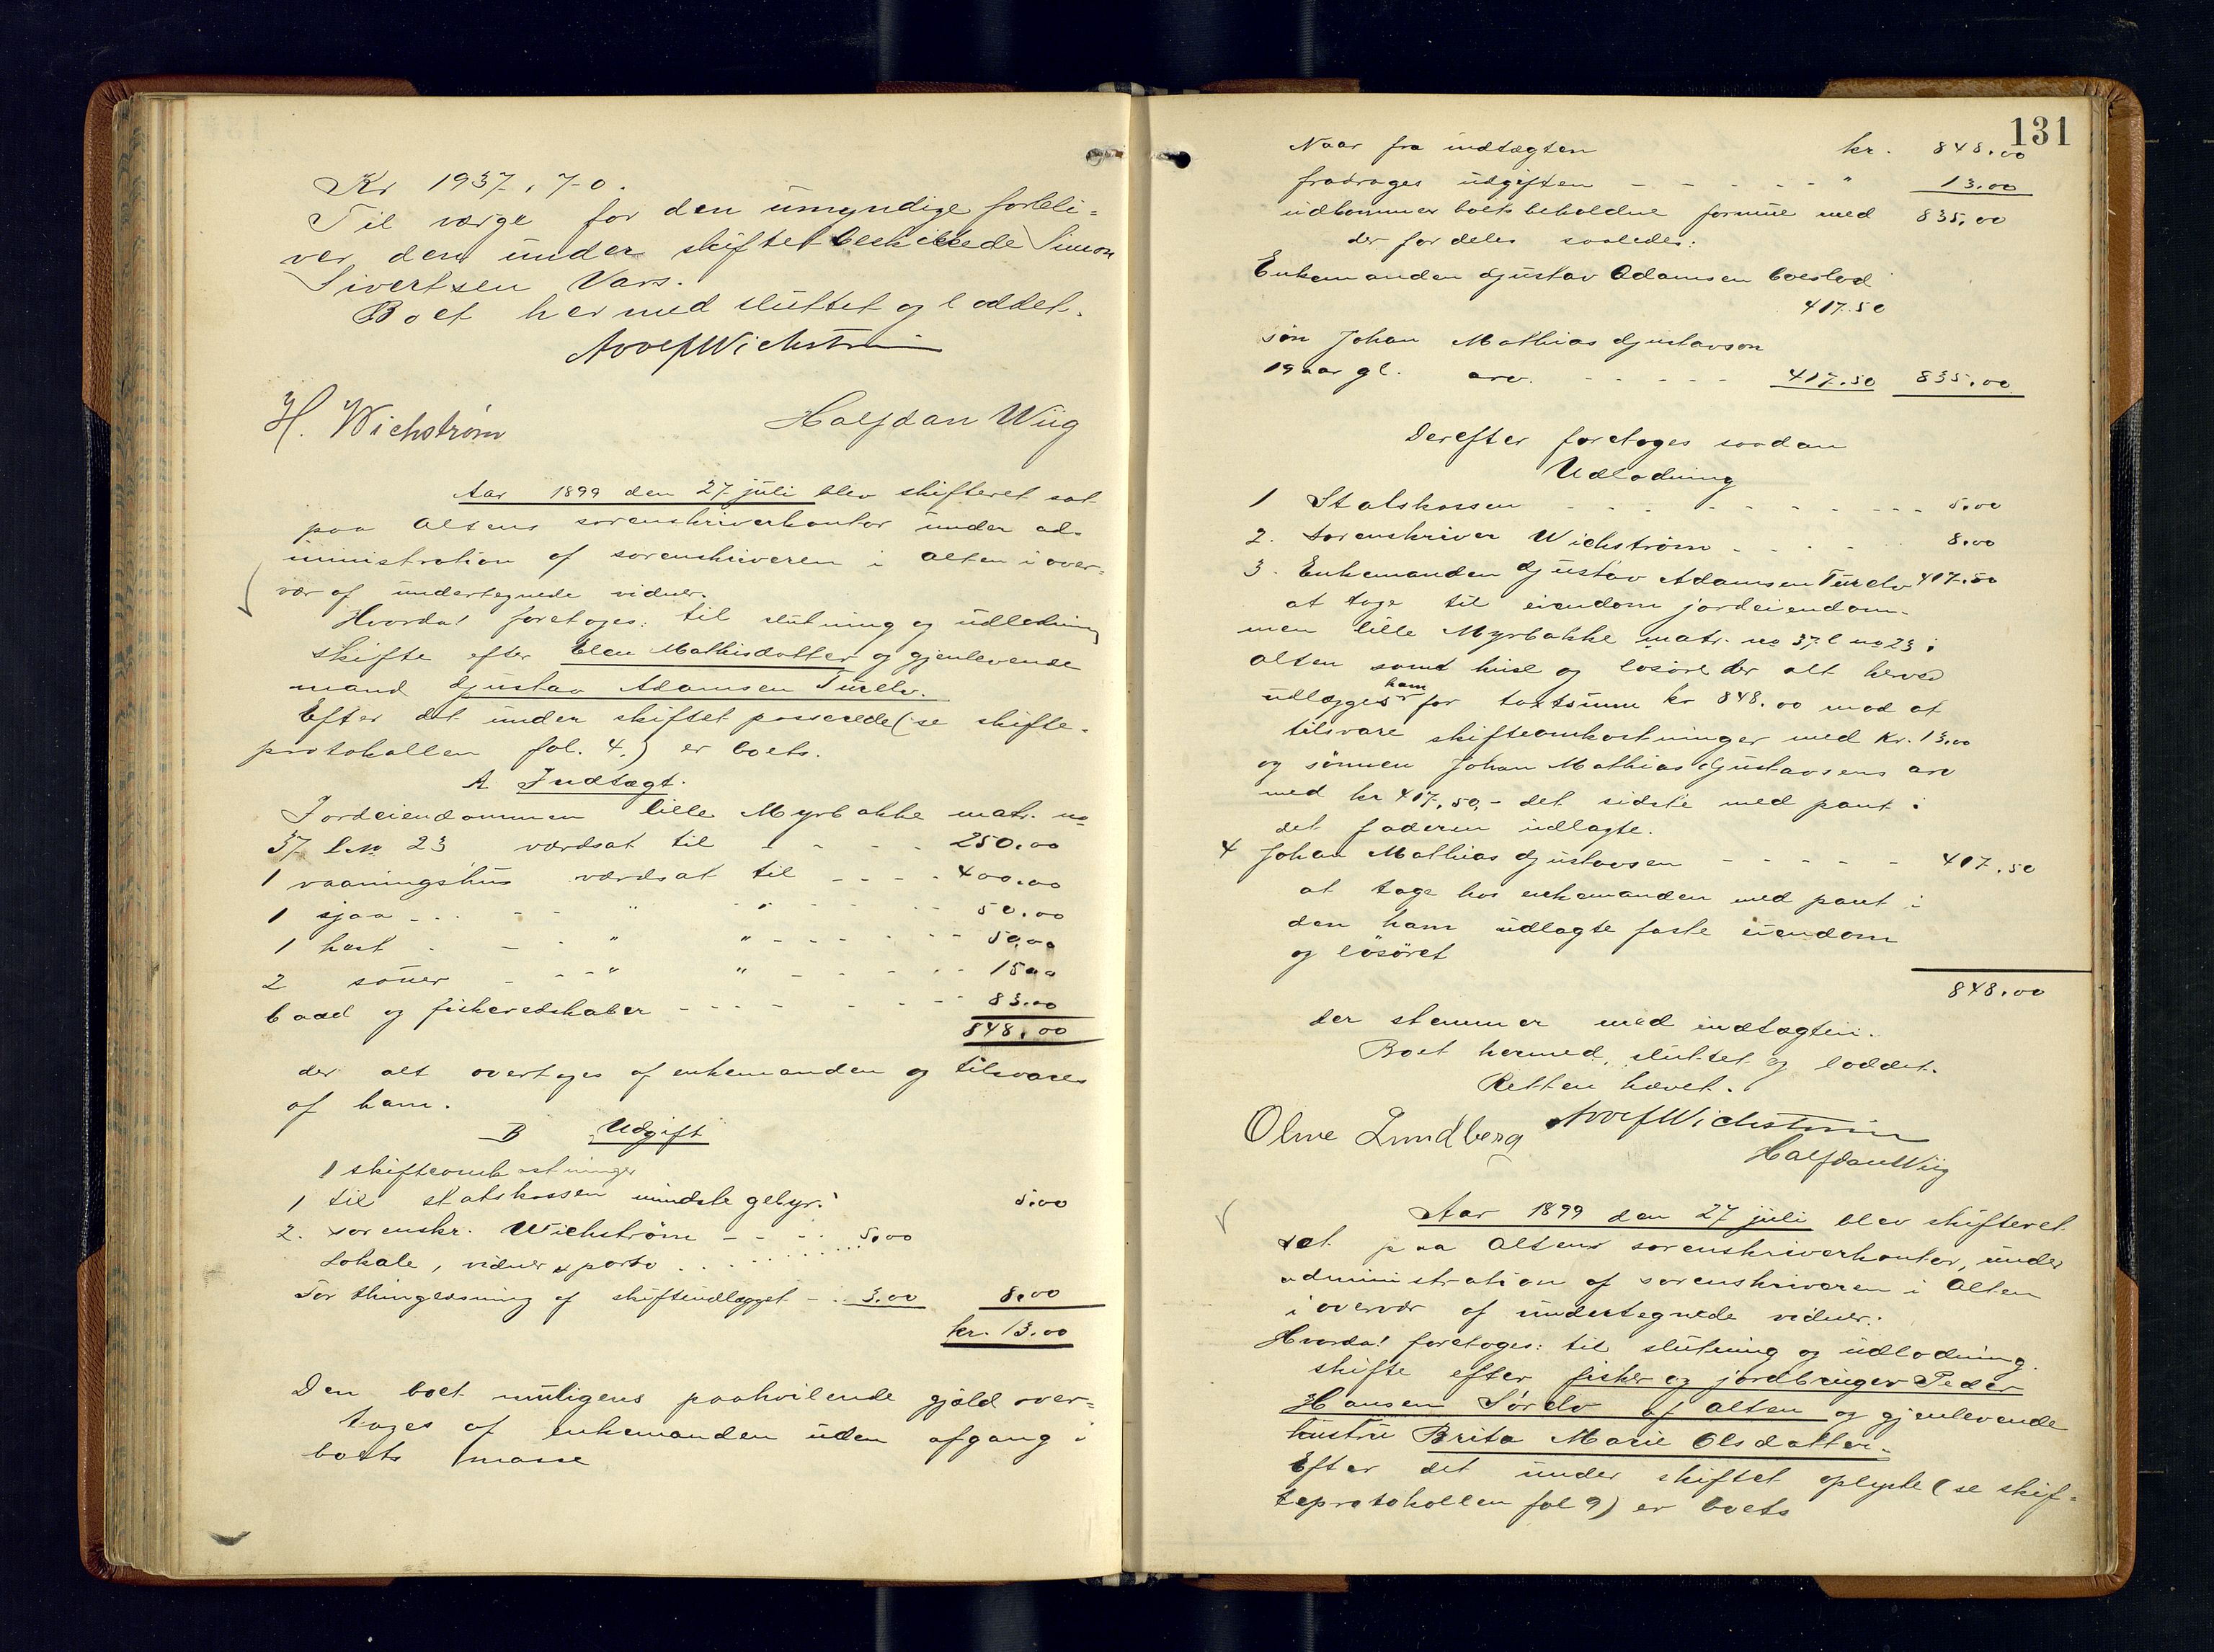 Kr 1937,70.
Til værge for den umyndige forbli=
ver den under skiftet beskikkede Simon
Sivertsen Vars.
Boet hermed sluttet og loddet.
Adolf Wichstrøm
H. Wichstrøm Halfdan Wiig
Aar 1899 den 27 juli blev skifteret sat
paa Altens sorenskriverkontor under ad-
ministration af sorenskriveren i Alten i over=
vær af undertegnede vidner.
Hvorda! foretoges: til slutning og udlodning
skifte efter Elen Mathisdatter og gjenlevende
mand Gjustav Adamsen Turelv.
Efter det under skiftet passerede (se skifte-
protokollen fol. 4.) er boets.
A Indtægt.
Jordeiendommen lille Myrbakke matr. no
37 l. no 23 værdsat til - - - - 250.00
1 vaaningshus værdsat til - - - - 400.00
1 sjaa - - - - - " - " - - - - 50.00
1 hest - - - " " - - - - - - 50.00
2 søuer - - - " " - - - - - 15.00
baad og fiskeredskaber - - - - - - - 83.00
848.00
der alt overtages af enkemanden og tilsvares
af ham.
B Udgift
1 skifteomkostninger
1 til statskassen mindste gebyr. 5.00
2. sorenskr. Wichstrøm - - - - 5.00
Lokale, vidner & porto . . . . . . . .
For thinglæsning af skifteudlægget - . 3.00 8.00
kr. 13.00
Den boet muligens paahvilende gjæld over=
tages af enkemanden uden afgang i
boets masse
131
Naar fra indtægten kr. 848.00
fradrages udgiften - - - - - " 13.00
udkommer boets beholdne formue med 835.00
der fordeles saaledes:
Enkemanden Gjustav Adamsen boeslod
417.50
søn Johan Mathias Gjustavson
19 aar gl. arv. - - - - - 417.50 835.00
Derefter foretoges saadan
Udlodning
1 Statskassen - - - - - - - - - - 5.00
2. Sorenskriver Wichstrøm - - - - 8.00
3. Enkemanden Gjustav Adamsen Turelv 417.50
at tage til eiendom jordeiendom-
men lille Myrbakke matr. no 37 l no 23 i
Alten samt huse og løsøre der alt herved
udlægges ham for taxtsum kr 848.00 mod at
tilsvare skifteomkostninger med kr. 13.00
og sønnen Johan Mathias Gjustavsens arv
med kr 417.50,- det sidste med pant i
det faderen udlagte.
4 Johan Mathias Gjustavsen - - - - - 417.50
at tage hos enkemanden med pant i
den ham udlagte faste eiendom
og løsøret
848.00
der stemmer med indtægten.
Boet hermed sluttet og loddet.
Retten hævet.
Adolf Wichstrøm
Olme Lundberg Halfdan Wiig
Aar 1899 den 27 juli blev skifteret
sat paa Altens sorenskriverkontor, under
administration af sorenskriveren i Alten
i overvær af undertegnede vidner.
Hvorda! foretoges: til slutning og udlodning.
skifte efter fisker og jordbruger Peder
Hansen Sørelv af Alten og gjenlevende
hustru Brita Marie Olsdatter.
Efter det under skiftet oplyste (se skif=
teprotokollen fol 9) er boets